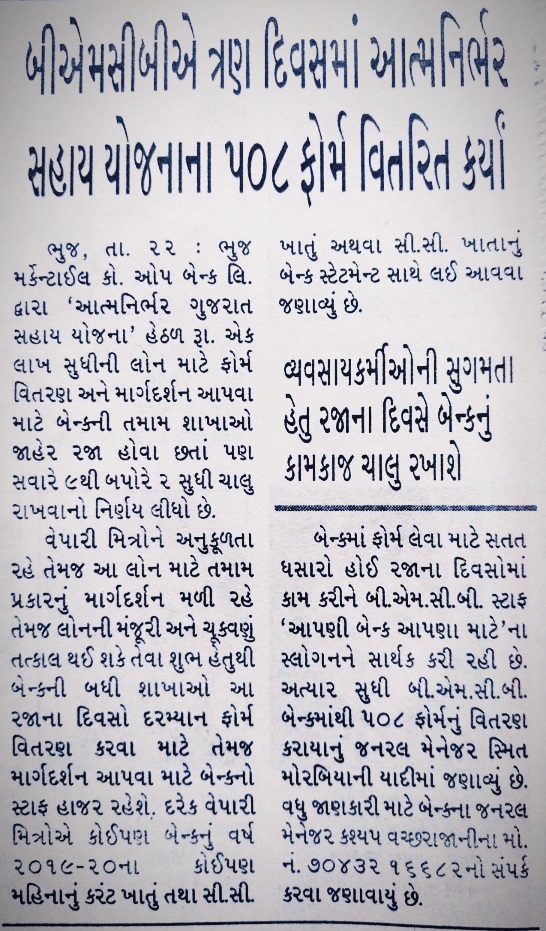 બીએમસીબીએ ત્રણ દિવસમાં આત્મનિર્ભર
સહાય યોજનાના ૫૦૮ ફોર્મ વિતરિત કર્યાં
ભુજ, તા. ૨૨ : ભુજ
મર્કેન્ટાઈલ કો. ઓપ બેન્ક લિ.
દ્વારા ‘આત્મનિર્ભર ગુજરાત
સહાય યોજના’ હેઠળ રૂા. એક
લાખ સુધીની લોન માટે ફોર્મ
વિતરણ અને માર્ગદર્શન આપવા
માટે બેન્કની તમામ શાખાઓ
જાહેર રજા હોવા છતાં પણ
સવારે ૯થી બપોરે ૨ સુધી ચાલુ
રાખવાનો નિર્ણય લીધો છે.
વેપારી મિત્રોને અનુકૂળતા
રહે તેમજ આ લોન માટે તમામ
પ્રકારનું માર્ગદર્શન મળી રહે
તેમજ લોનની મંજૂરી અને ચૂકવણું
તત્કાલ થઈ શકે તેવા શુભ હેતુથી
બેન્કની બધી શાખાઓ આ
રજાના દિવસો દરમ્યાન ફોર્મ
વિતરણ કરવા માટે તેમજ
માર્ગદર્શન આપવા માટે બેન્કનો
સ્ટાફ હાજર રહેશે. દરેક વેપારી
મિત્રોએ કોઈપણ બેન્કનું વર્ષ
૨૦૧૯-૨૦ના કોઈપણ
મહિનાનું કરંટ ખાતું તથા સી.સી.
ખાતું અથવા સી.સી. ખાતાનું
બેન્ક સ્ટેટમેન્ટ સાથે લઈ આવવા
જણાવ્યું છે.
વ્યવસાયકર્મીઓની સુગમતા
હેતુ રજાના દિવસે બેન્કનું
કામકાજ ચાલુ રખાશે
બેન્કમાં ફોર્મ લેવા માટે સતત
ધસારો હોઈ રજાના દિવસોમાં
કામ કરીને બી.એમ.સી.બી. સ્ટાફ
‘આપણી બેન્ક આપણા માટે’ના
સ્લોગનને સાર્થક કરી રહી છે.
અત્યાર સુધી બી.એમ.સી.બી.
બેન્કમાંથી ૫૦૮ ફોર્મનું વિતરણ
કરાયાનું જનરલ મેનેજર સ્મિત
મોરબિયાની યાદીમાં જણાવ્યું છે.
વધુ જાણકારી માટે બેન્કના જનરલ
મેનેજર કશ્યપ વચ્છરાજાનીના મો.
નં. ૭૦૪૩૨ ૧૬૬૮૨નો સંપર્ક
કરવા જણાવાયું છે.